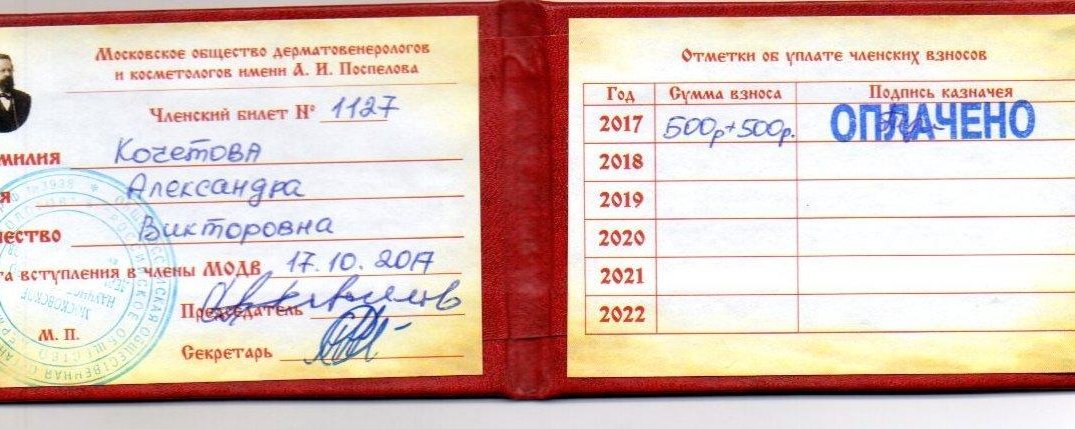 Московское общество дерматовенерологов
и косметологов имени А. И. Поспелова
Членский билет № 1127
милия Кочетова
я Александра
ество Викторовна
та вступления в члены МОДВ 17.10.2017
Председатель
М. П.
Секретарь
Отметки об уплате членских взносов
Год Сумма взноса Подпись казначея
2017 500р+500р. ОПЛАЧЕНО
2018
2019
2020
2021
2022